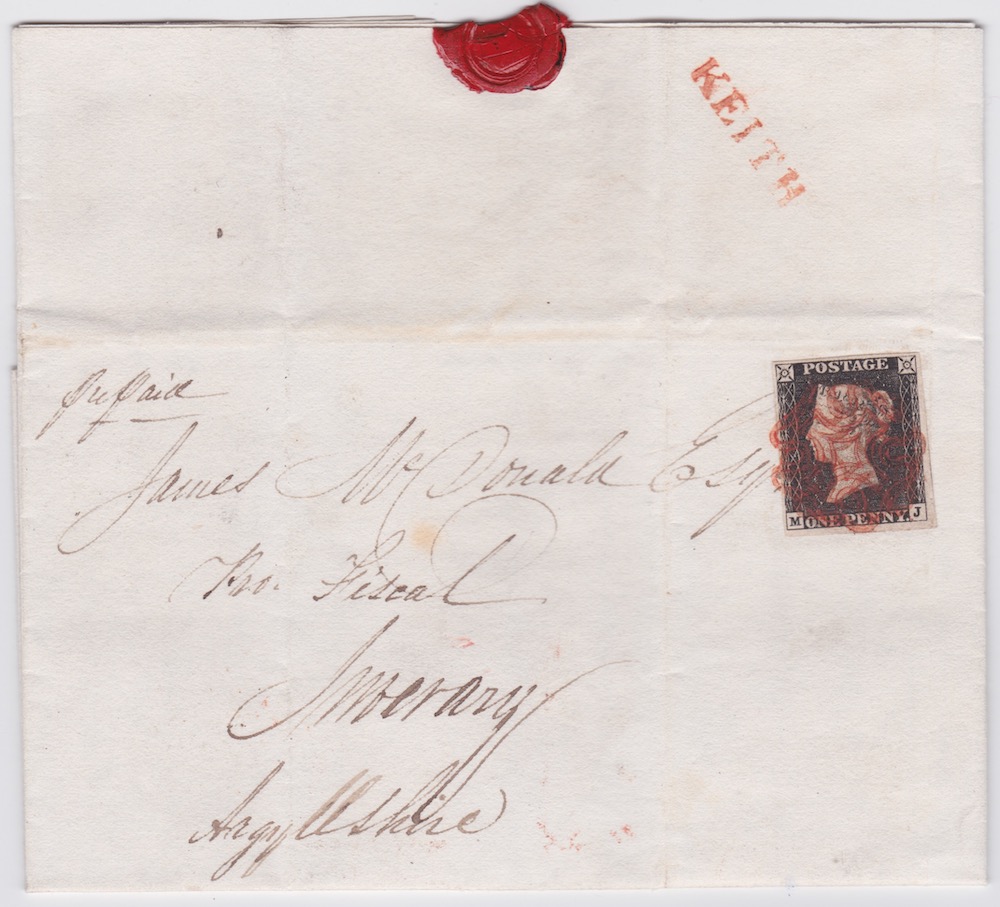 KEITH
POSTAGE
prepaid
James McDonald Esq
Pro. Fiscal
Inverary
Argyllshire
M ONE PENNY. J